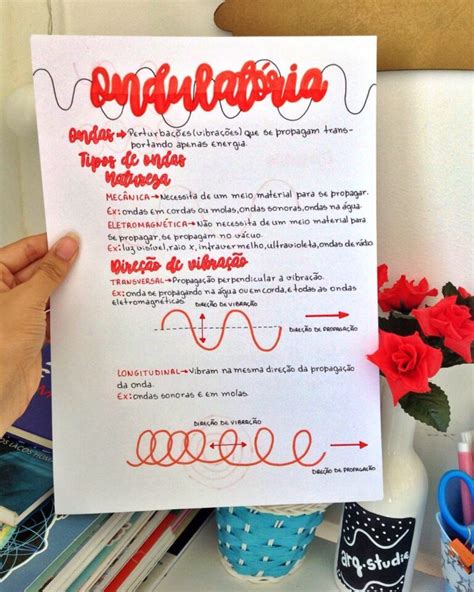 Ondulatória
Ondas → Perturbações (vibrações) que se propagam trans-
portando apenas energia.
Tipos de ondas
Natureza
MECÂNICA → Necessita de um meio material para se propagar.
Ex: ondas em cordas ou molas, ondas sonoras, ondas na água.
ELETROMAGNÉTICA → Não necessita de um meio material para
se propagar, se propagam no vácuo.
Ex: luz visível, raio x, infravermelho, ultravioleta, ondas de rádio.
Direção de vibração
TRANSVERSAL → Propagação perpendicular a vibração.
Ex: onda se propagando na água ou em corda, e todas as ondas
eletromagnéticas.
DIREÇÃO DE VIBRAÇÃO
DIREÇÃO DE PROPAGAÇÃO
LONGITUDINAL → Vibram na mesma direção da propagação
da onda.
Ex: ondas sonoras e em molas.
DIREÇÃO DE VIBRAÇÃO
DIREÇÃO DE PROPAGAÇÃO
arq.studie